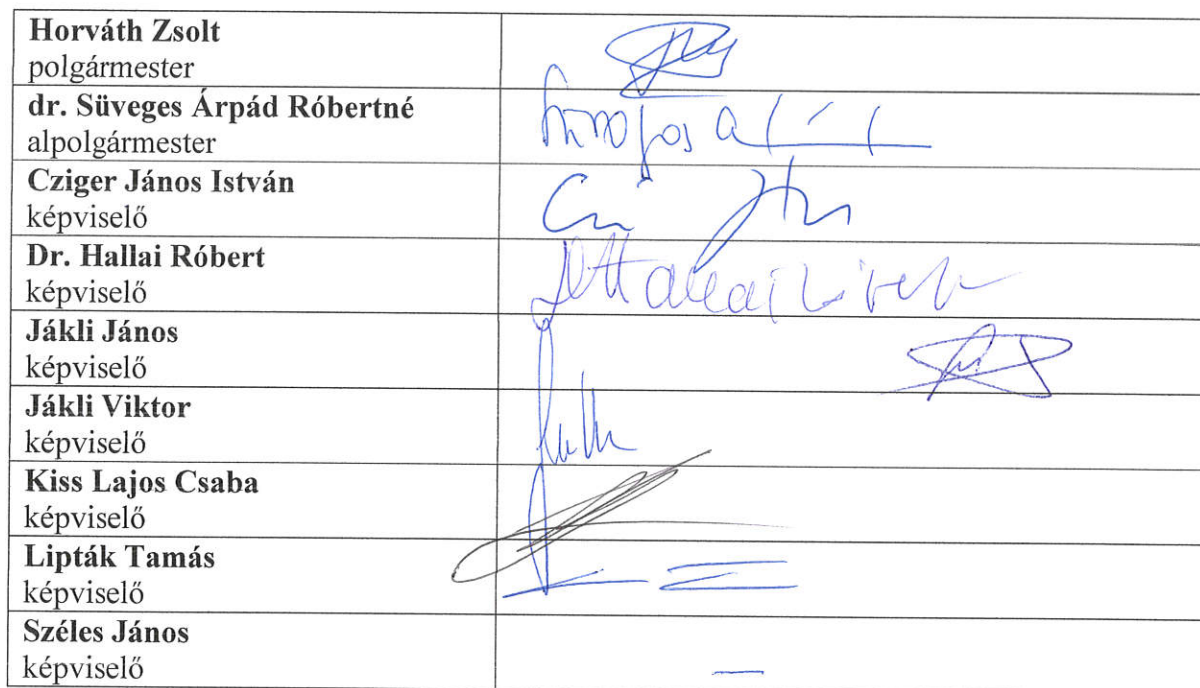 Horváth Zsolt
polgármester
dr. Süveges Árpád Róbertné
alpolgármester
Cziger János István
képviselő
Dr. Hallai Róbert
képviselő
Jákli János
képviselő
Jákli Viktor
képviselő
Kiss Lajos Csaba
képviselő
Lipták Tamás
képviselő
Széles János
képviselő